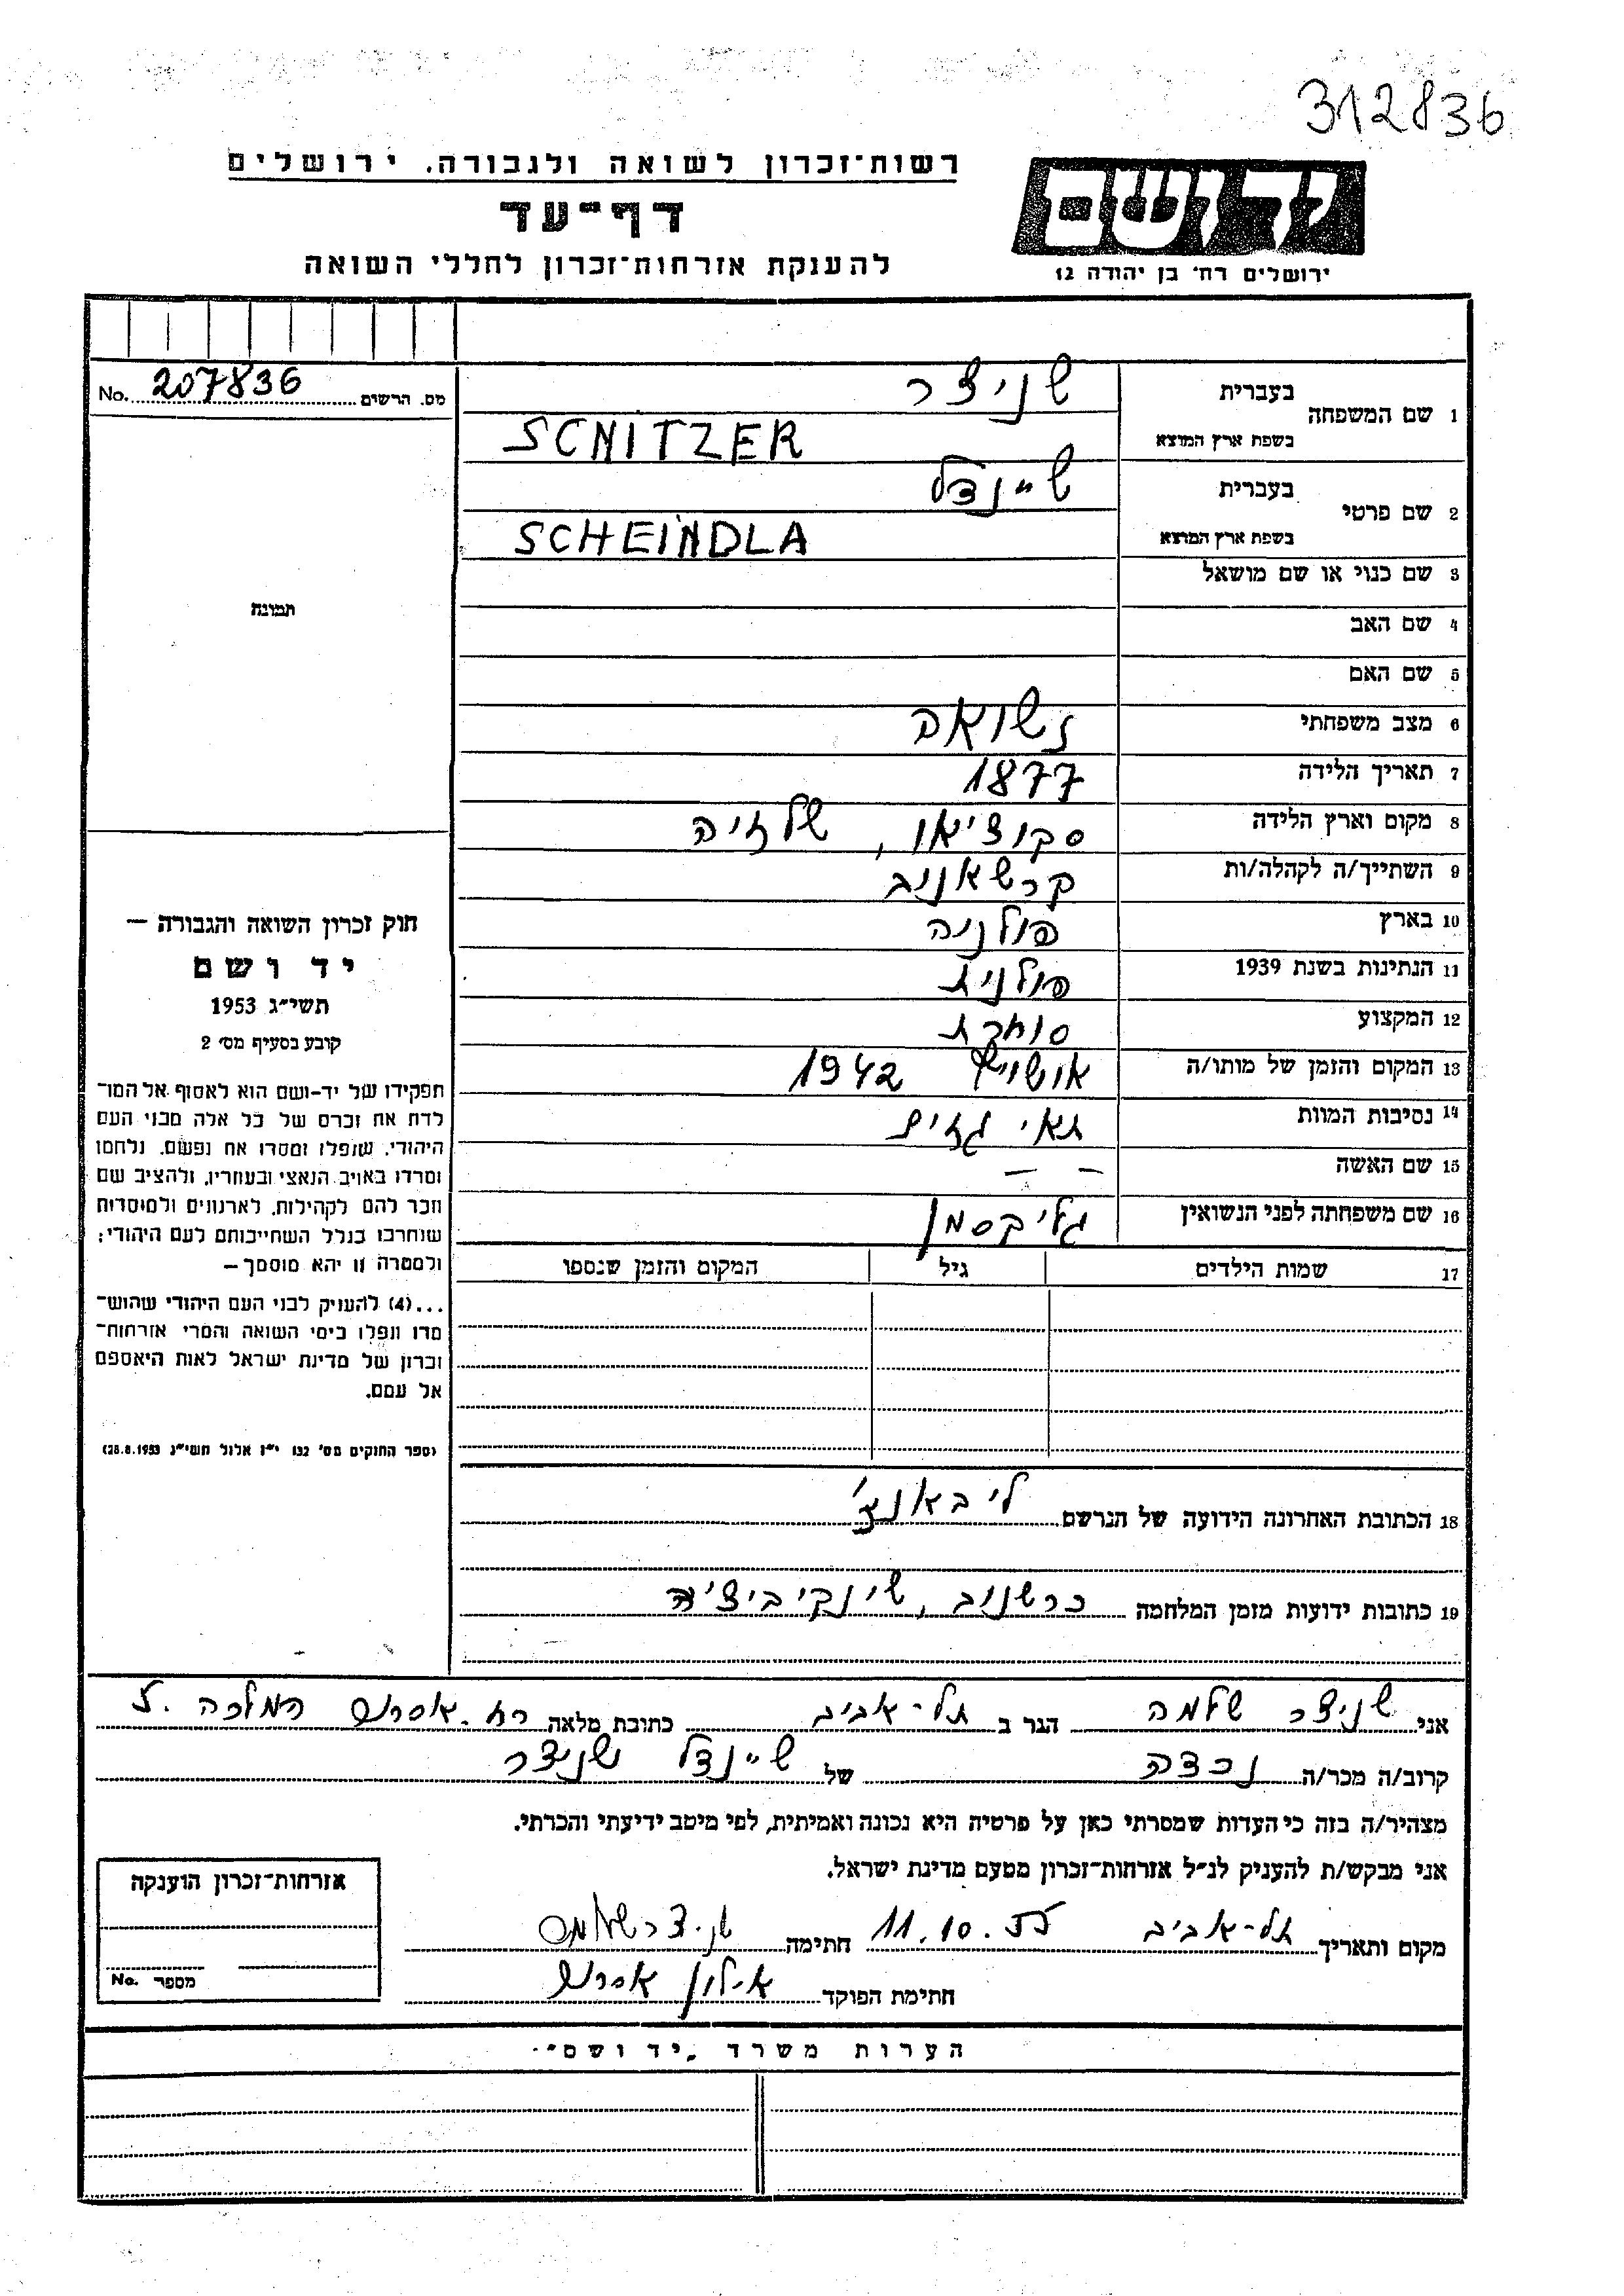 312836
רשות־זכרון לשואה ולגבורה. ירושלים
ידושם
דף־עד
ירושלים רח׳ בן יהודה 12
להענקת אזרחות־זכרון לחללי השואה
מס. הרשים 207836 No.
1 שם המשפחה בעברית שניצר
בשפת ארץ המוצא SCNITZER
2 שם פרטי בעברית שיינדל
בשפת ארץ המוצא SCHEINDLA
3 שם כנוי או שם מושאל
תמונה
4 שם האב
5 שם האם
6 מצב משפחתי נשואה
7 תאריך הלידה 1877
8 מקום וארץ הלידה סקוציאו, שלזיה
9 השתייך/ה לקהלה/ות קרשאנוב
10 בארץ פולניה
11 הנתינות בשנת 1939 פולנית
12 המקצוע סוחרת
13 המקום והזמן של מותו/ה אושויץ 1942
14 נסיבות המוות תאי גזים
15 שם האשה — —
16 שם משפחתה לפני הנשואין גליקסמן
17 שמות הילדים גיל המקום והזמן שנספו
חוק זכרון השואה והגבורה —
יד ושם
תשי״ג 1953
קובע בסעיף מס׳ 2
תפקידו של יד-ושם הוא לאסוף אל המו־
לדת את זכרם של כל אלה מבני העם
היהודי, שנפלו ומסרו את נפשם, נלחמו
ומרדו באויב הנאצי ובעוזריו, ולהציב שם
וזכר להם לקהילות, לארגונים ולמוסדות
שנחרבו בגלל השתייכותם לעם היהודי;
ולמטרה זו יהא מוסמך —
...(4) להעניק לבני העם היהודי שהוש־
מדו ונפלו בימי השואה והמרי אזרחות־
זכרון של מדינת ישראל לאות היאספם
אל עמם.
(ספר החוקים מס׳ 132 י״ז אלול תשי״ג 28.8.1953)
18 הכתובת האחרונה הידועה של הנרשם ליבאונצ׳
19 כתובות ידועות מזמן המלחמה כרשנוב, שינקיביצ׳ה
אני שניצר שלמה הגר ב תל-אביב כתובת מלאה רח. אסתר המלכה 7.
קרוב/ה מכר/ה נכדה של שיינדל שניצר
מצהיר/ה בזה כי העדות שמסרתי כאן על פרטיה היא נכונה ואמיתית, לפי מיטב ידיעתי והכרתי.
אני מבקש/ת להעניק לנ״ל אזרחות-זכרון מטעם מדינת ישראל.
אזרחות־זכרון הוענקה
מקום ותאריך תל-אביב 11.10.55 חתימה שניצר שלמה
מספר No.
חתימת הפוקד אילון אסתר
הערות משרד „יד ושם״